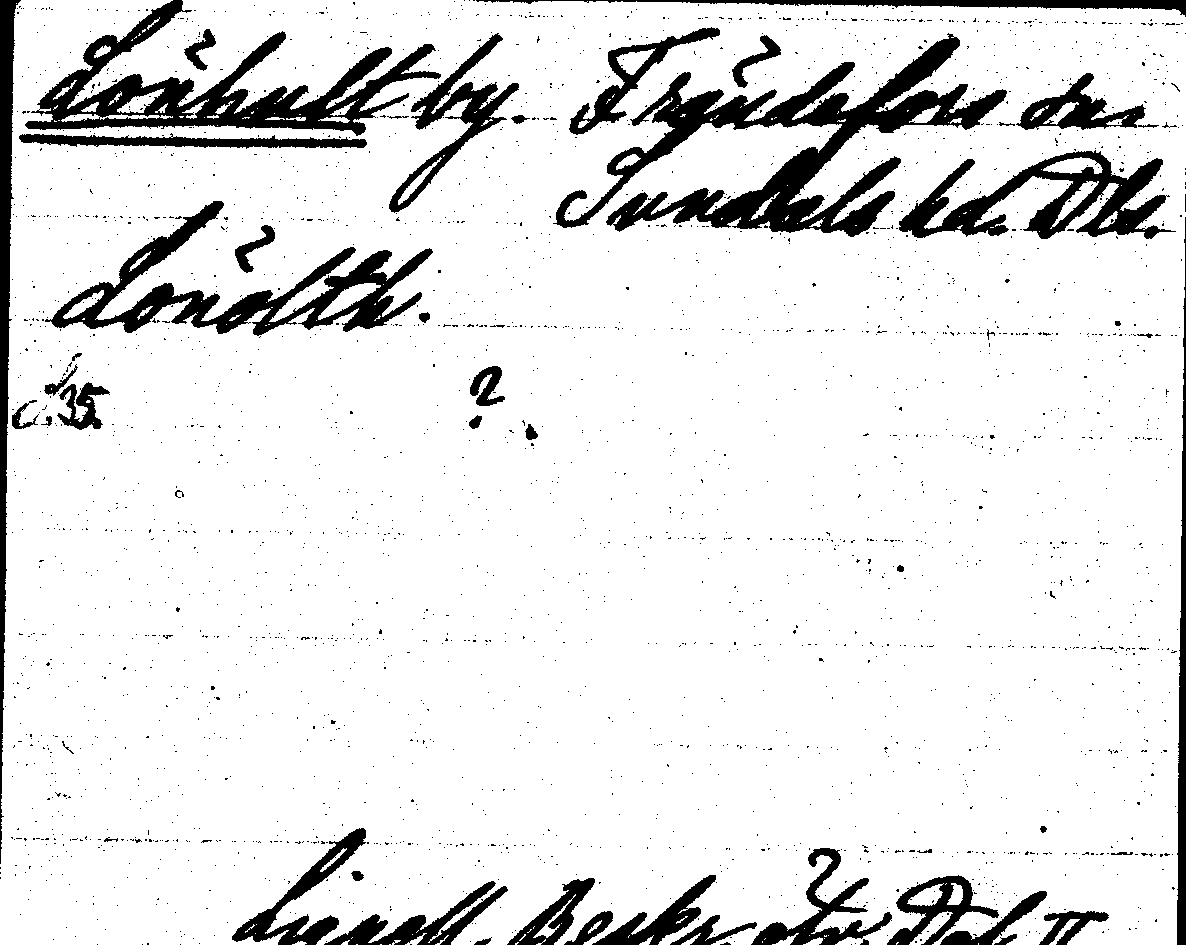 Lönhult by. Frändefors sn.
Sundals hd. Dls.
Lönölth.
S.35. ?
Lignell. Beskr. öfv. Dal II